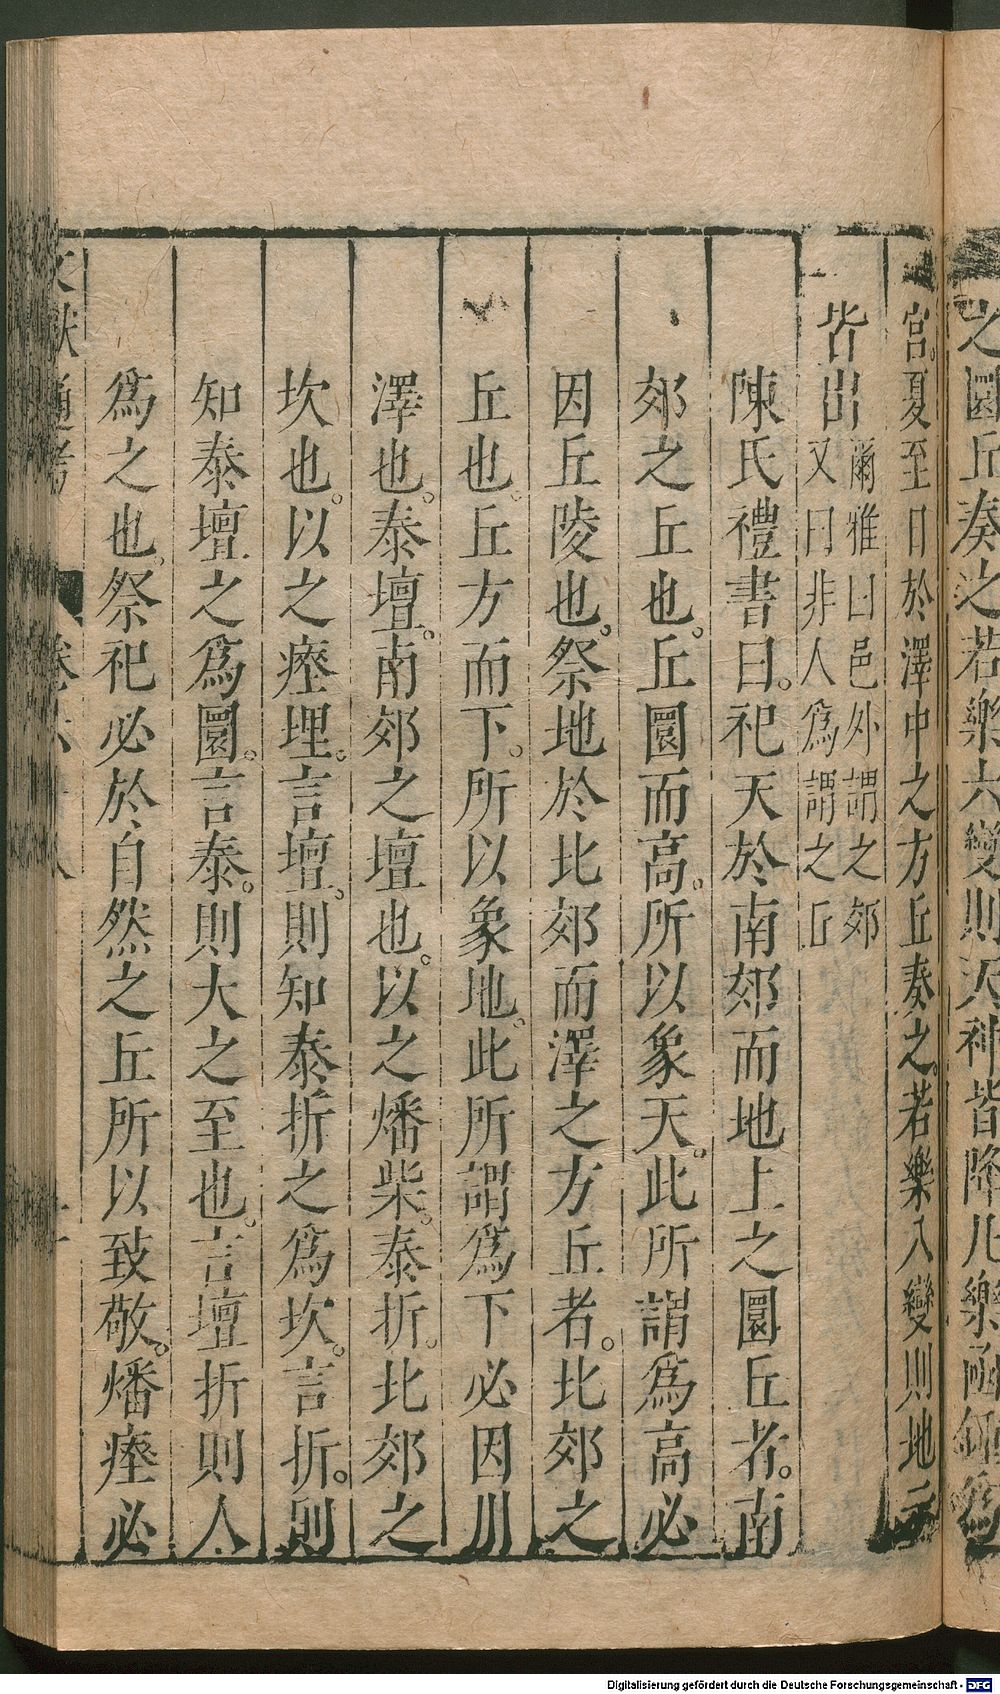 之圜丘奏之若樂六變則天神皆降凡樂函鍾爲
宮。夏至日於澤中之方丘奏之。若樂八變則地示
皆出爾雅曰邑外謂之郊又曰非人爲謂之丘
陳氏禮書曰。祀天於南郊而地上之圜丘者。南
郊之丘也。丘圜而高。所以象天。此所謂爲高必
因丘陵也。祭地於北郊而澤之方丘者。北郊之
丘也。丘方而下。所以象地。此所謂爲下必因川
澤也。泰壇。南郊之壇也。以之燔柴。泰折。北郊之
坎也。以之瘞埋。言壇。則知泰折之爲坎。言折。則
知泰壇之爲圜。言泰。則大之至也。言壇折則人
爲之也。祭祀必於自然之丘所以致敬。燔瘞必
文獻通考 卷六十八
Digitalisierung gefördert durch die Deutsche Forschungsgemeinschaft - DFG